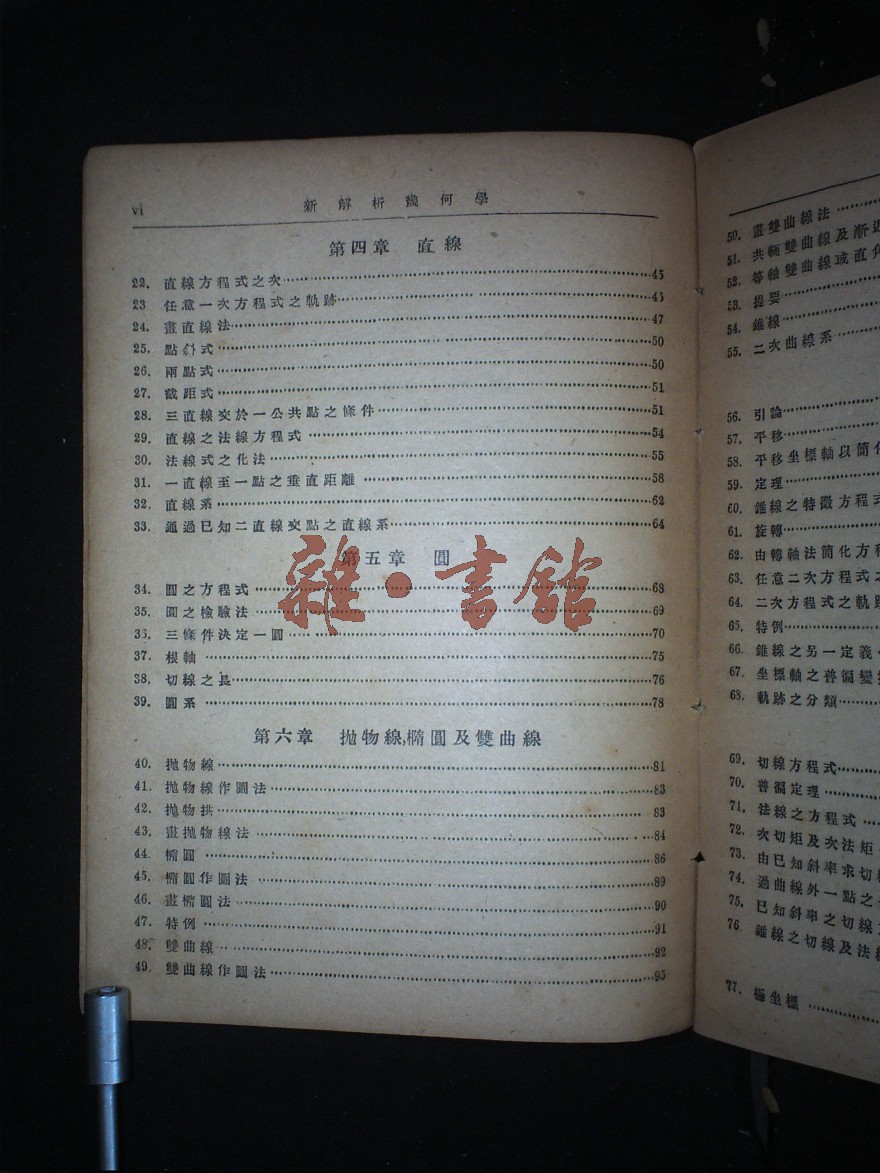 vi
新解析幾何學
第四章 直線
22. 直線方程式之次……45
23 任意一次方程式之軌跡……45
24. 畫直線法……47
25. 點斜式……50
26. 兩點式……50
27. 截距式……51
28. 三直線交於一公共點之條件……51
29. 直線之法線方程式……54
30. 法線式之化法……55
31. 一直線至一點之垂直距離……58
32. 直線系……62
33. 通過已知二直線交點之直線系……64
第五章 圓
34. 圓之方程式……68
35. 圓之檢驗法……69
35. 三條件決定一圓……70
37. 根軸……75
38. 切線之長……76
39. 圓系……78
第六章 拋物線,橢圓及雙曲線
40. 拋物線……81
41. 拋物線作圖法……83
42. 拋物拱……83
43. 畫拋物線法……84
44. 橢圓……86
45. 橢圓作圖法……89
46. 畫橢圓法……90
47. 特例……91
48. 雙曲線……92
49. 雙曲線作圖法……95
雜·書館
50. 畫雙曲線法……
51. 共軛雙曲線及漸近
52. 等軸雙曲線或直角
53. 提要……
54. 錐線……
55. 二次曲線系……
56. 引論……
57. 平移……
58. 平移坐標軸以簡化
59. 定理……
60. 錐線之特徵方程式
61. 旋轉……
62. 由轉軸法簡化方程
63. 任意二次方程式之
64. 二次方程式之軌跡
65. 特例……
66. 錐線之另一定義
67. 坐標軸之普徧變
68. 軌跡之分類……
69. 切線方程式……
70. 普徧定理……
71. 法線之方程式……
72. 次切矩及次法矩
73. 由已知斜率求切線
74. 過曲線外一點之
75. 已知斜率之切線
76. 錐線之切線及法線
77. 極坐標……